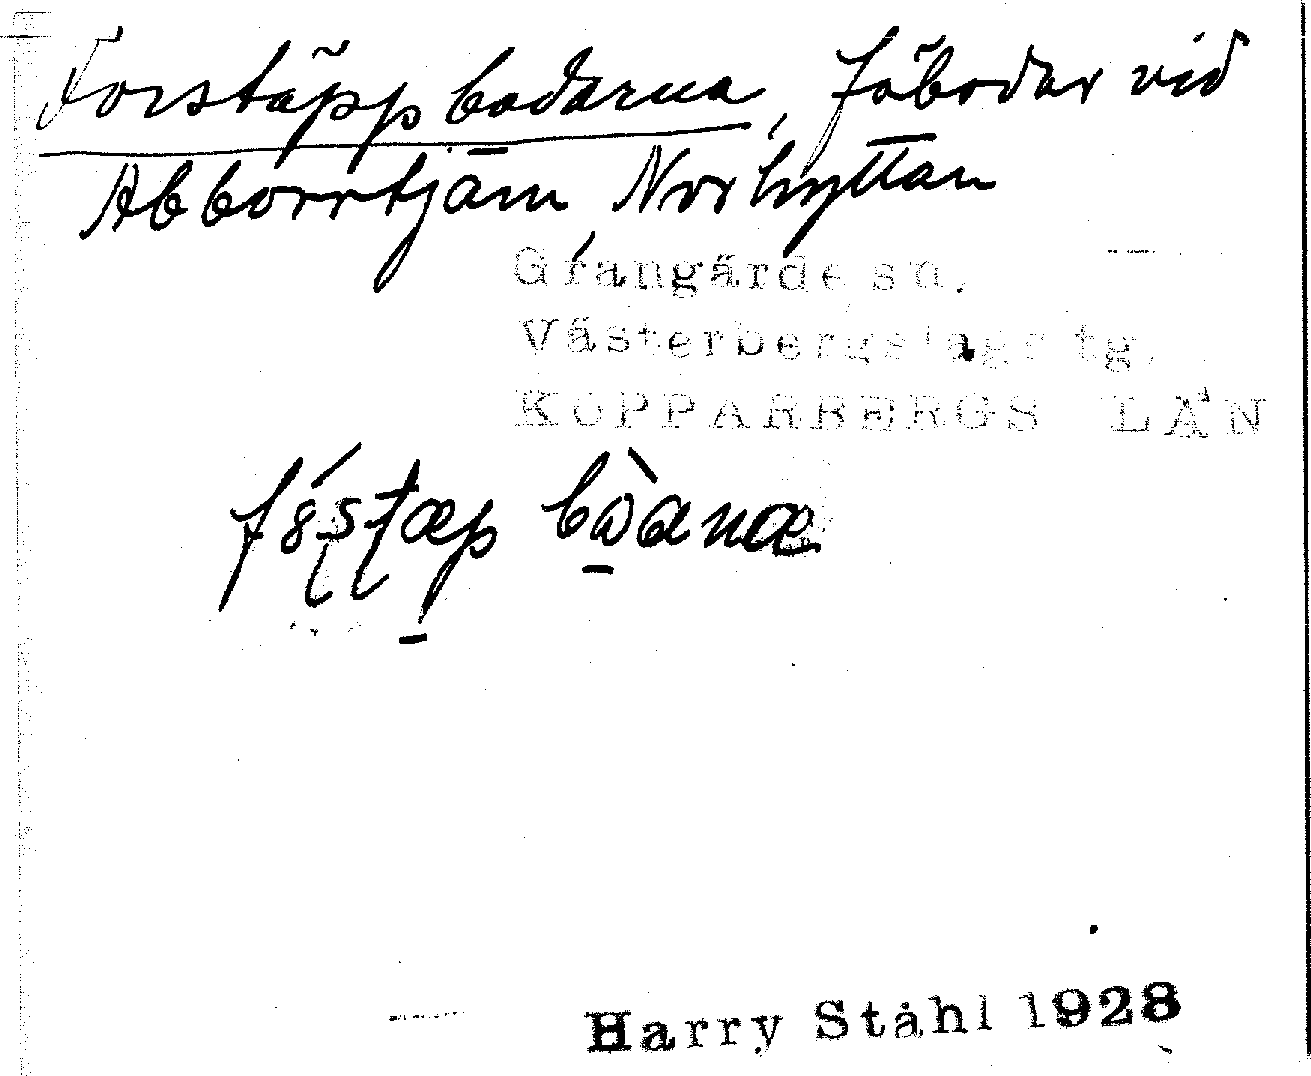 Forstäppbodarna, fäbodar vid
Abborrtjärn, Norhyttan
Grangärde sn.
Västerbergslags tg.
KOPPARBERGS LÄN
Harry Ståhl 1928